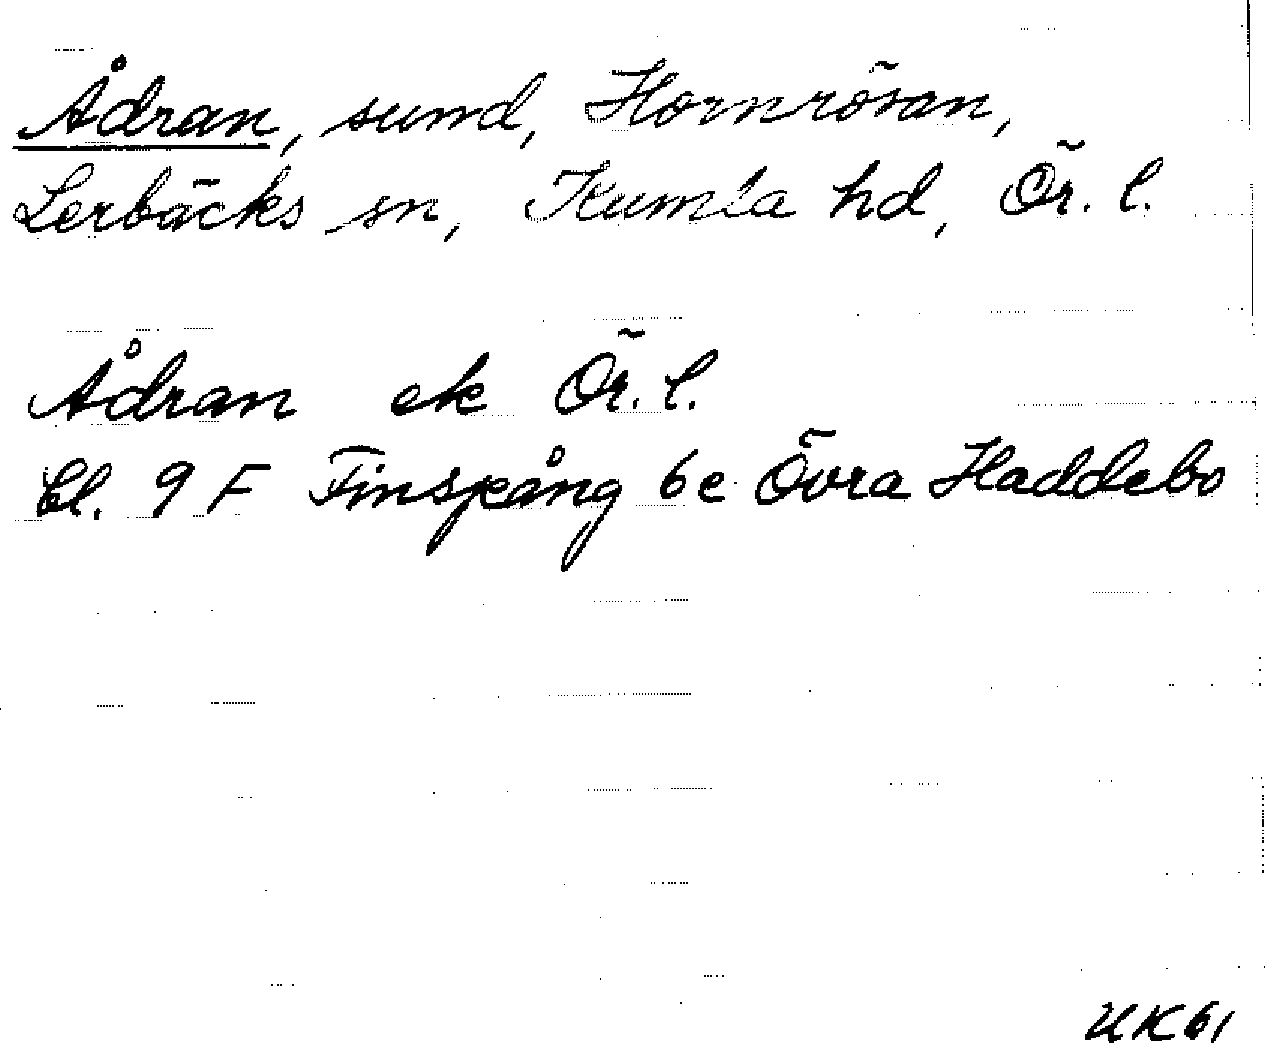 Ådran, sund, Hornrösan,
Lerbäcks sn, Kumla hd, Ör. l.
Ådran ek Ör. l.
Bl. 9 F Finspång 6e Övra Haddebo
UK61